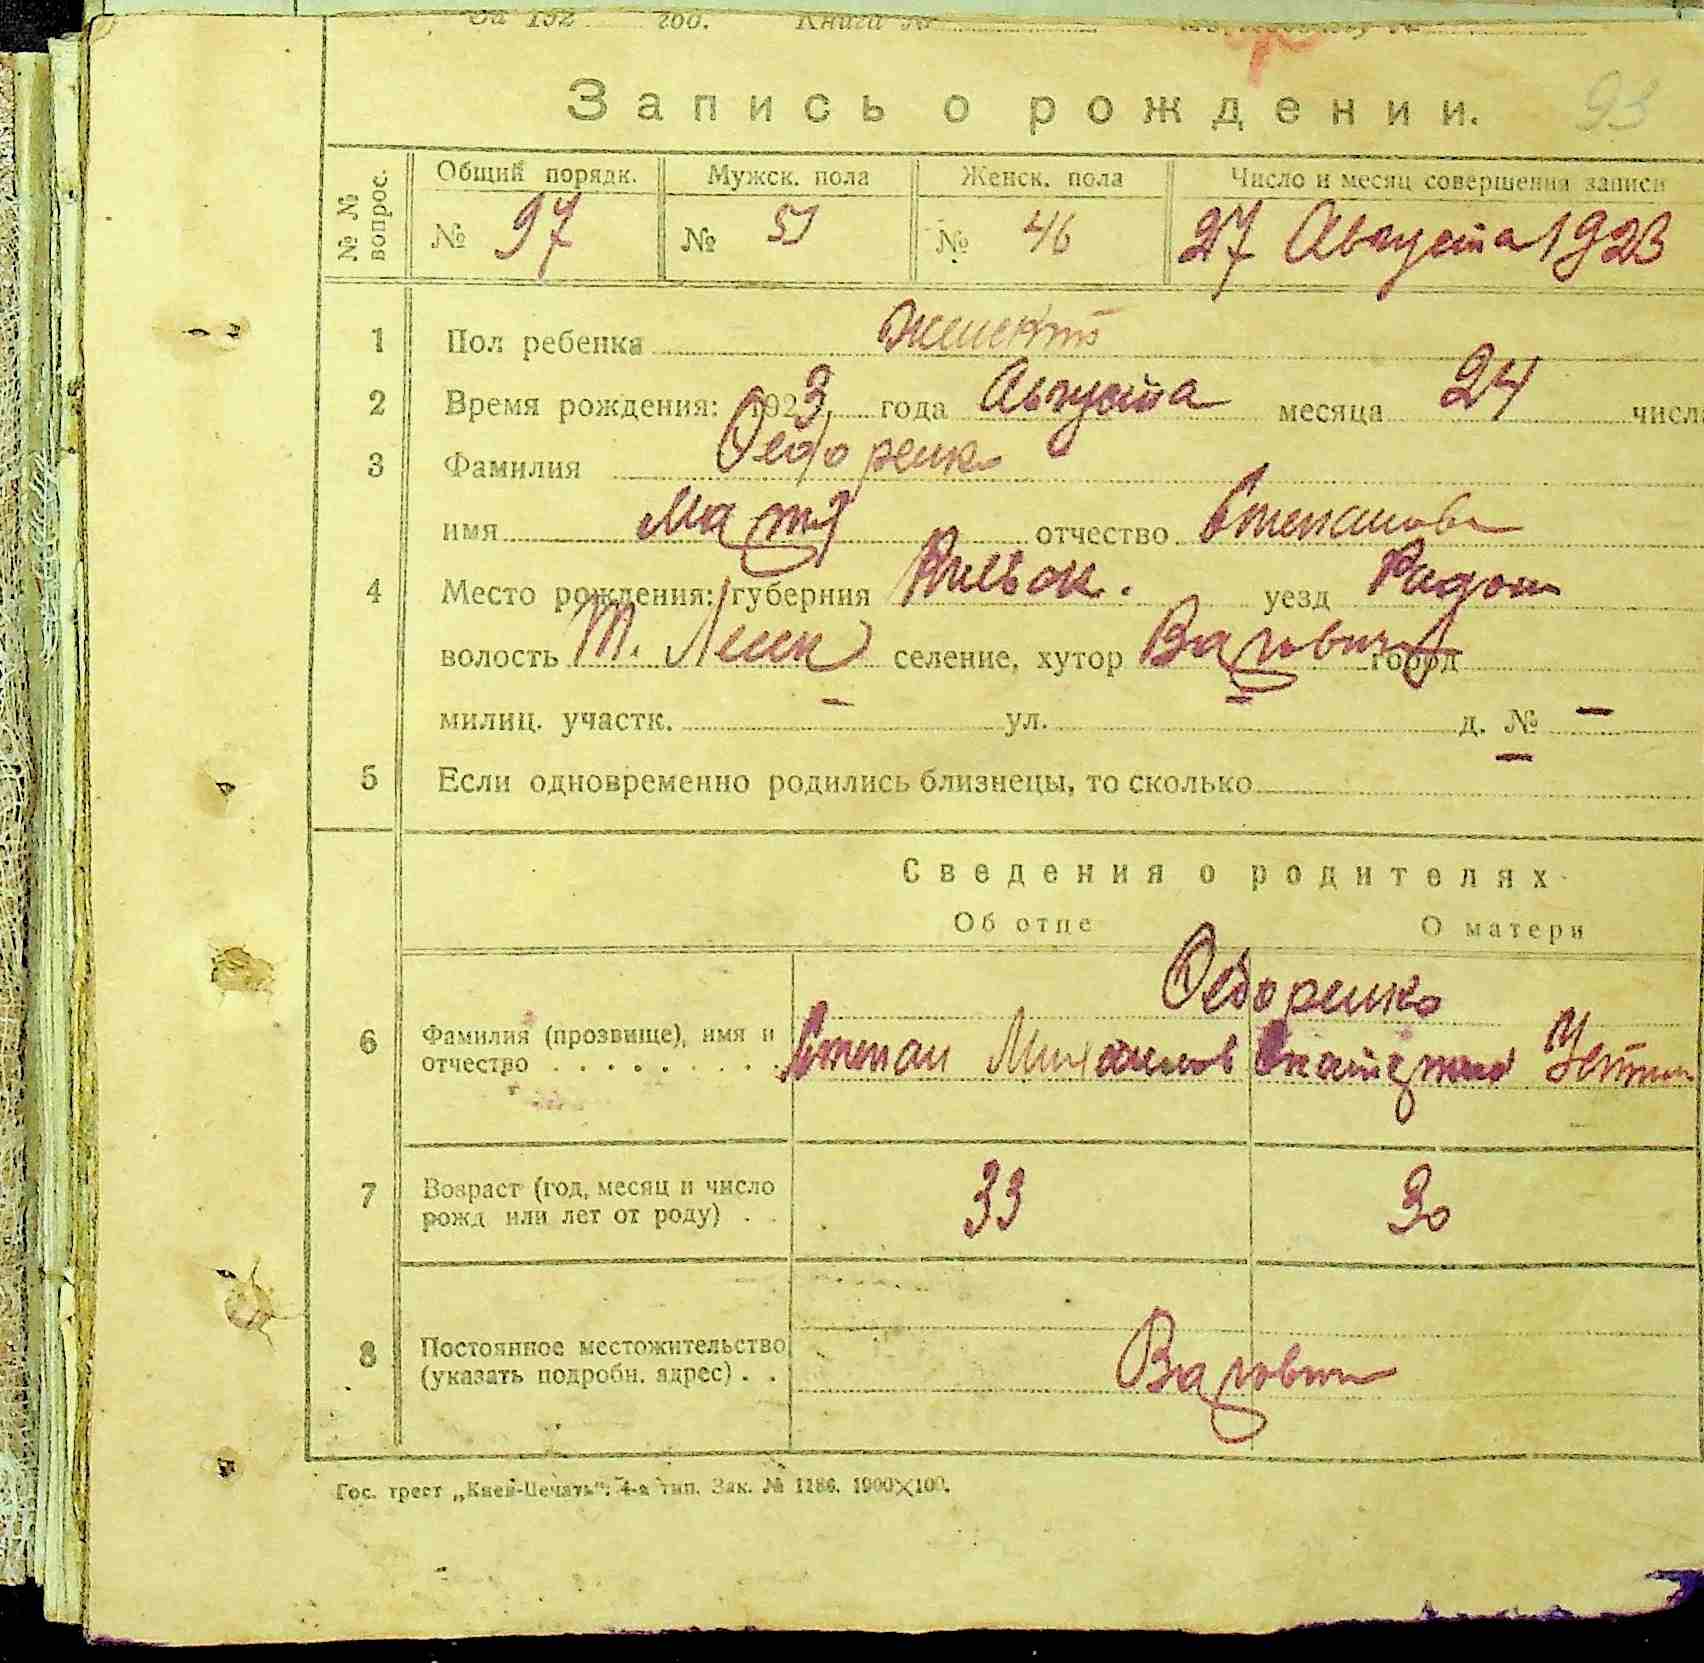 За 192 год. Книга №
93
Запись о рождении.
№ № вопрос.
Общий порядк. Мужск. пола Женск. пола Число и месяц совершения записи
№ 97 № 51 № 46 27 Августа 1923
1 Пол ребенка женский
2 Время рождения: 1923 года Августа месяца 24 числа
3 Фамилия Федоренко
имя отчество Степанова
4 Место рождения: губерния уезд Радом
волость селение, хутор город
милиц. участк. — ул. — д. № —
5 Если одновременно родились близнецы, то сколько —
Сведения о родителях
Об отце О матери
Федоренко
6 Фамилия (прозвище), имя и отчество . . . . . . . . . Степан Михайлов Екатерина Устин
7 Возраст (год, месяц и число рожд или лет от роду) . . 33 30
8 Постоянное местожительство (указать подробн. адрес) . .
Гос. трест „Киев-Печать“. 4-а тип. Зак. № 1186. 1900×100.